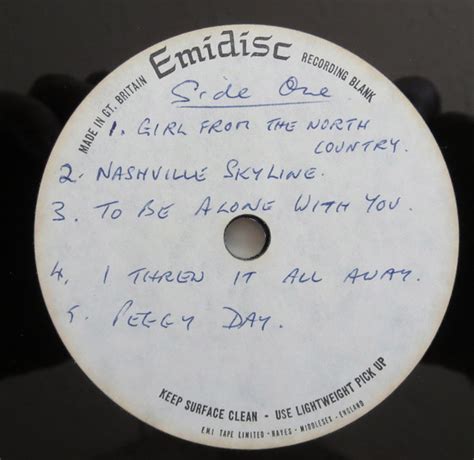 Emidisc
MADE IN GT. BRITAIN
RECORDING BLANK
Side One
1. GIRL FROM THE NORTH
COUNTRY.
2. NASHVILLE SKYLINE.
3. TO BE ALONE WITH YOU.
4. I THREW IT ALL AWAY.
5. PEGGY DAY.
KEEP SURFACE CLEAN - USE LIGHTWEIGHT PICK UP
E.M.I TAPE LIMITED - HAYES - MIDDLESEX - ENGLAND